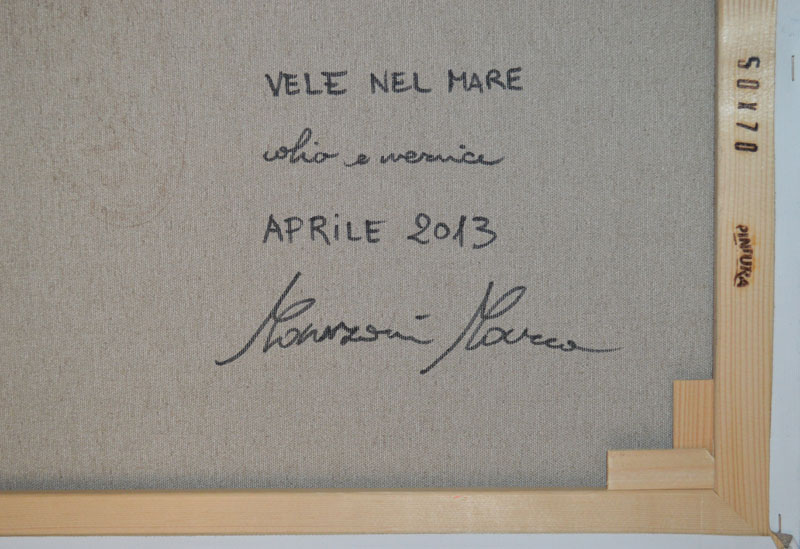 VELE NEL MARE
olio e vernice
APRILE 2013
Manzoni Marco
50X70
PINTURA